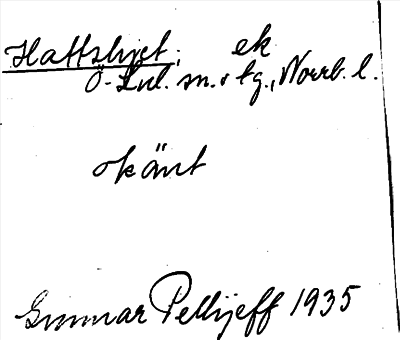 Hattshyet; ek
Ö-Lul. sn. o tg., Norrb. l.
okänt
Gunnar Pellijeff 1935